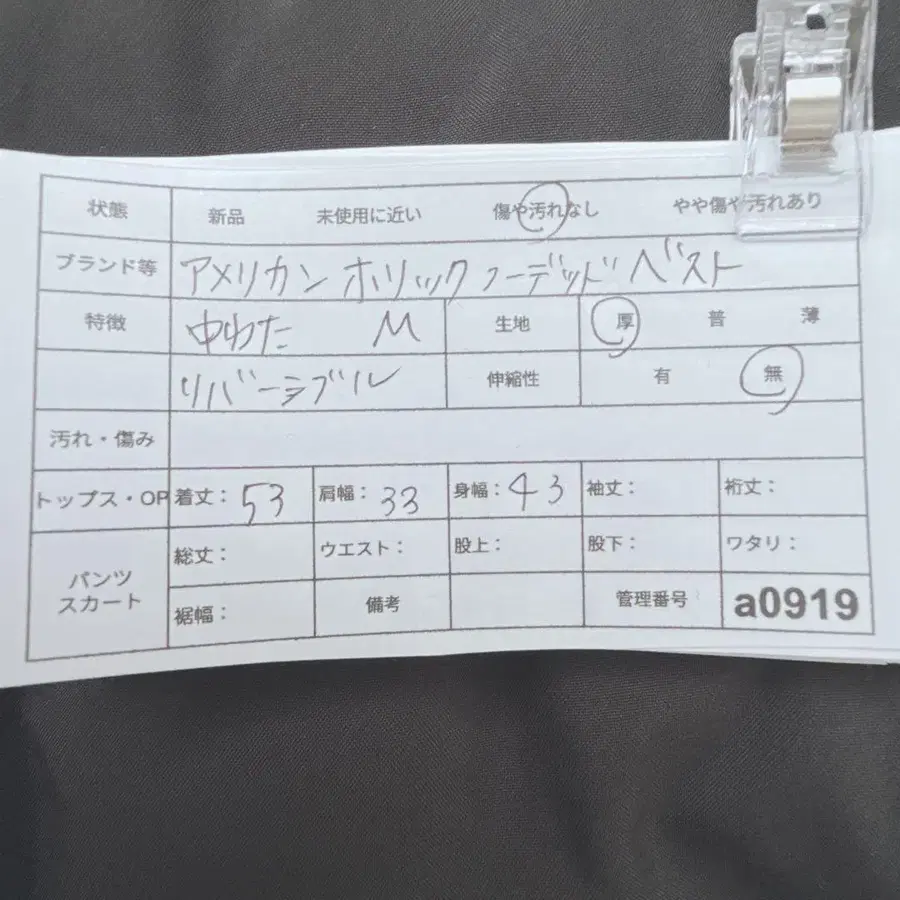 状態 新品 未使用に近い 傷や汚れなし やや傷や汚れあり
ブランド等 アメリカン ホリック フーデッドベスト
特徴 中わた M 生地 厚 普 薄
リバーシブル 伸縮性 有 無
汚れ・傷み
トップス・OP 着丈: 53 肩幅: 33 身幅: 43 袖丈: 裄丈:
パンツ スカート 総丈: ウエスト: 股上: 股下: ワタリ:
裾幅: 備考 管理番号 a0919